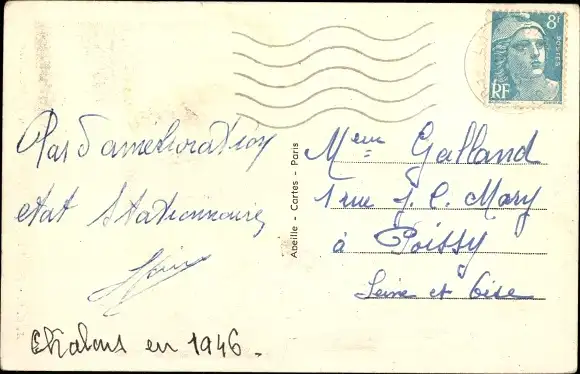 Pas d'amelioration
etat stationnaire
Chalons en 1946.
Abeille - Cartes - Paris
8F
POSTES
RF
Meme Galland
1 rue J. C. Mary
à Poissy
Seine et Oise